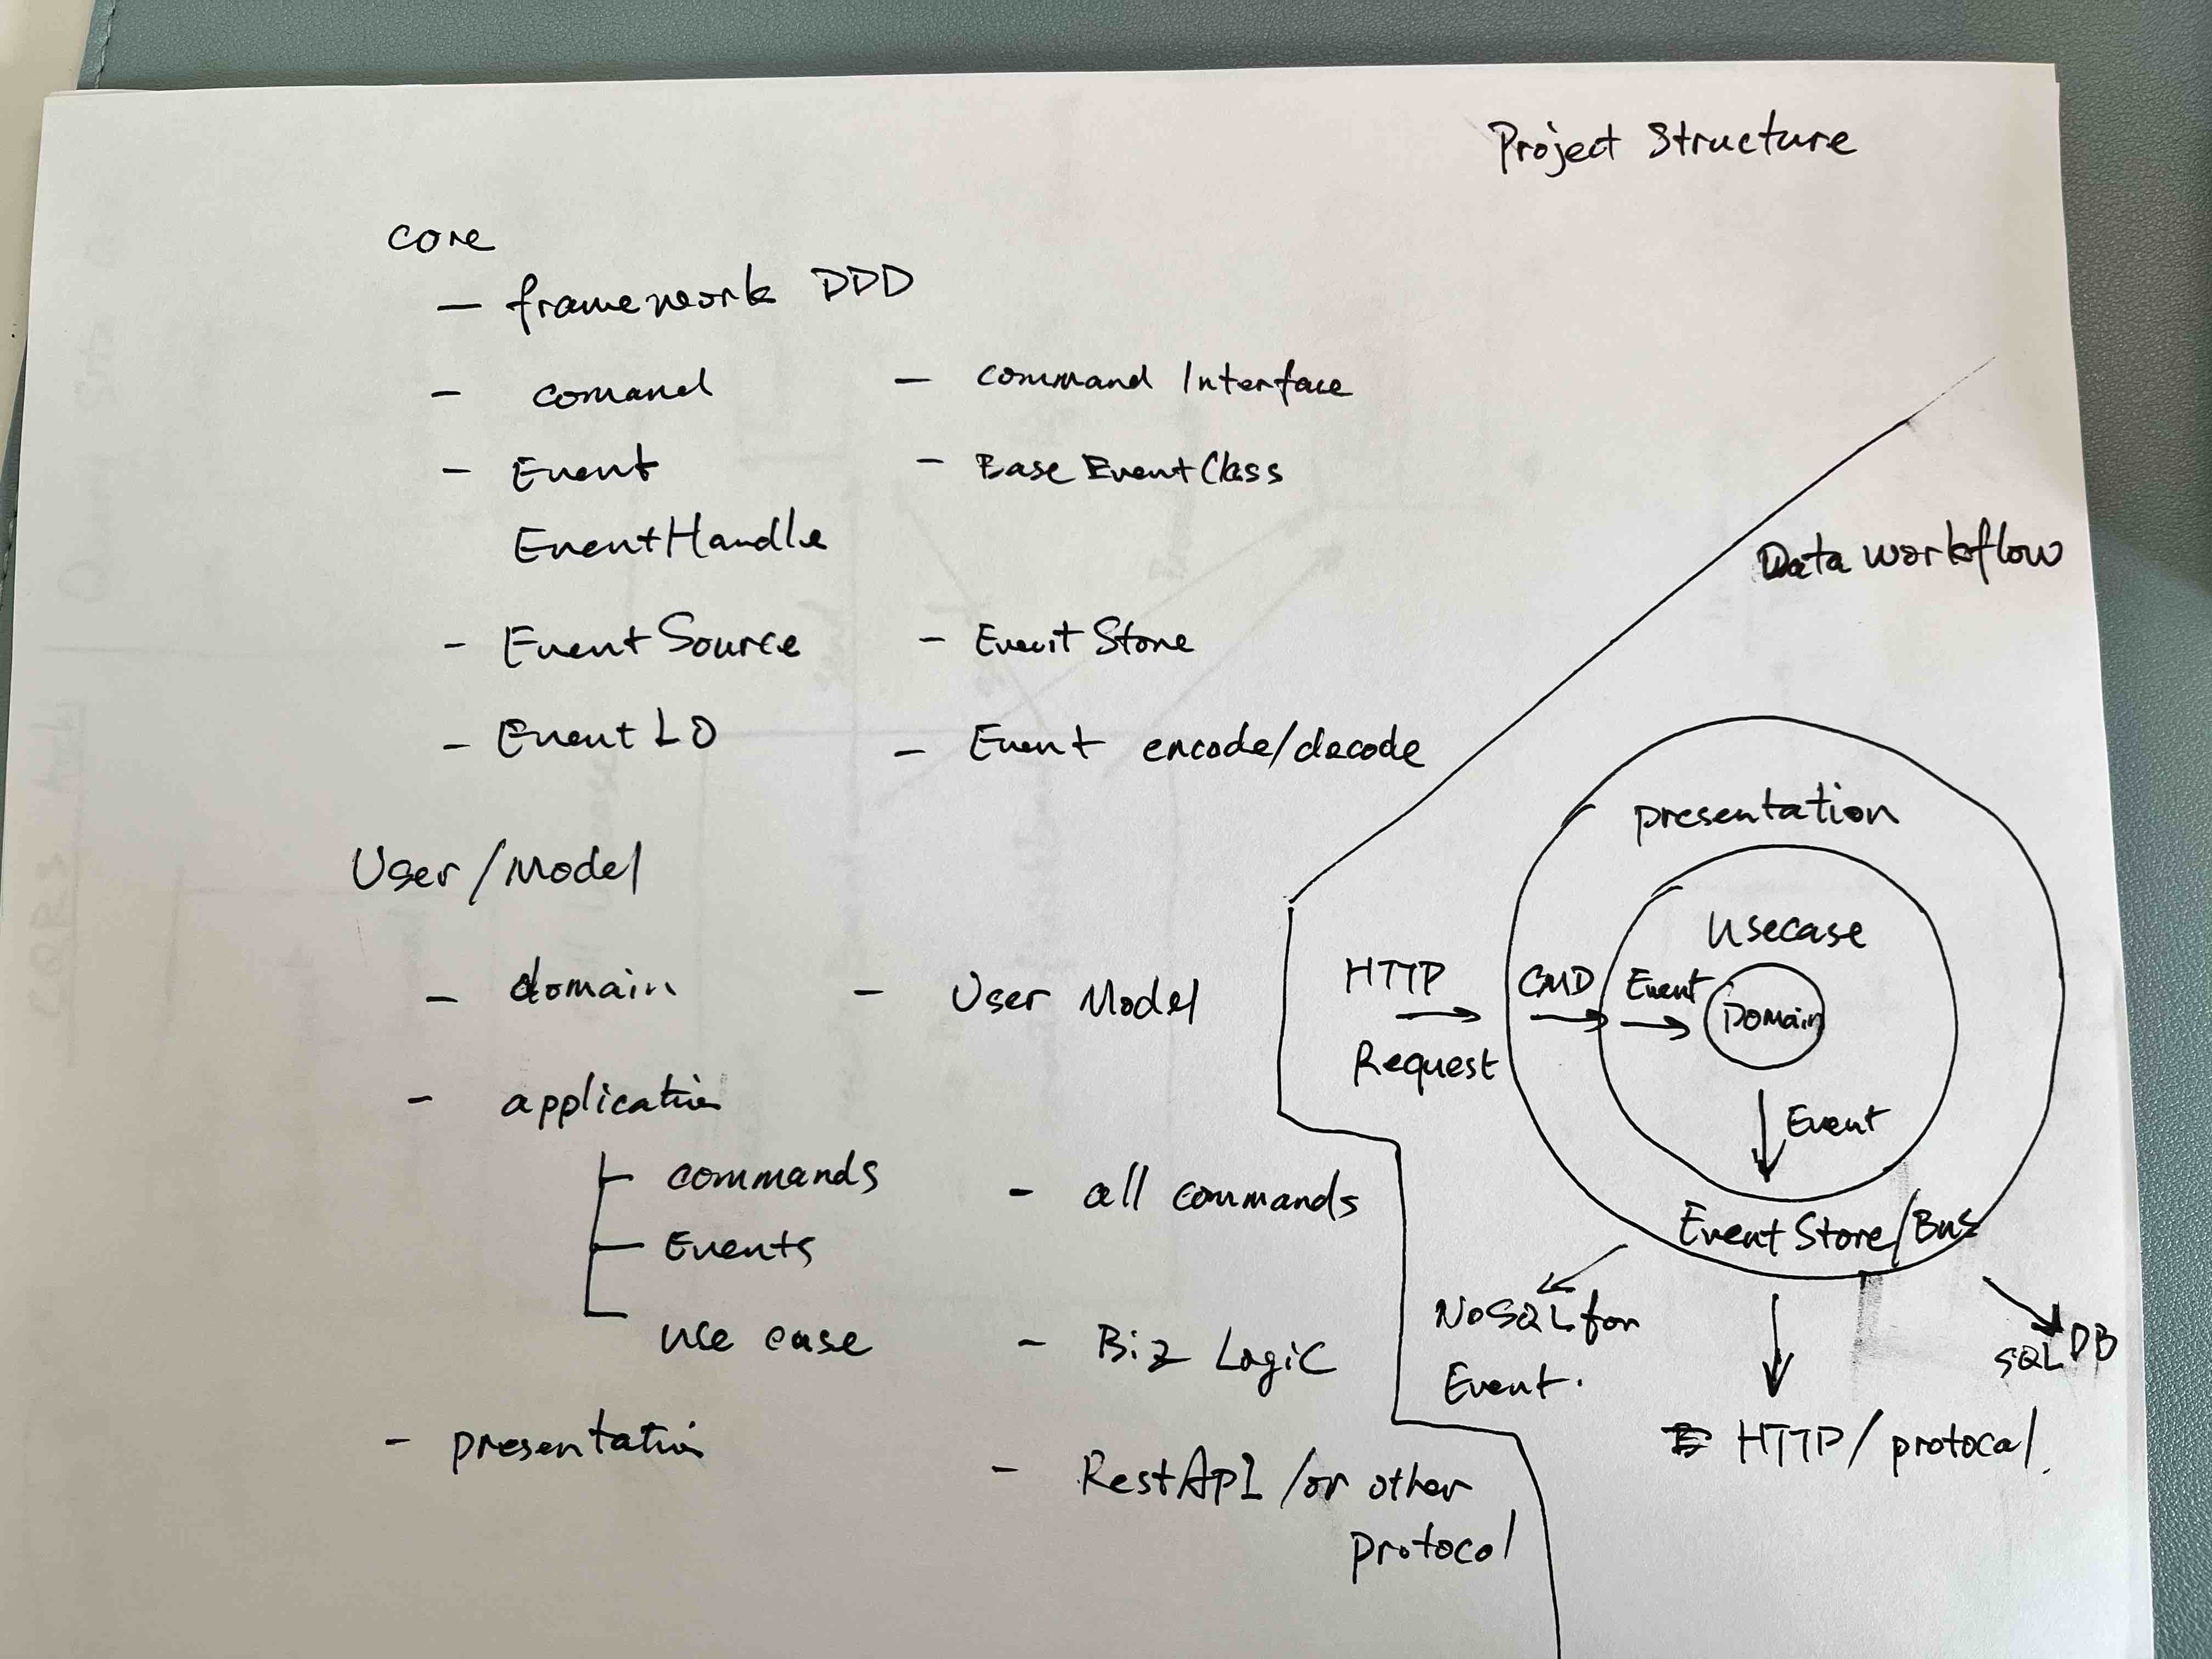 Project Structure
core
— framework DDD
- comand - command Interface
- Event - Base Event Class
EventHandle
- Event Source - Event Store
- Event LO - Event encode/decode
User/Model
- domain - User Model
- application
commands - all commands
Events
use case - Biz Logic
- presentation - RestAPI /or other
protocol
Data workflow
presentation
Usecase
HTTP
Request
CMD
Event
Domain
Event
Event Store/Bus
NoSQL for
Event.
SQL DB
HTTP/protocal.